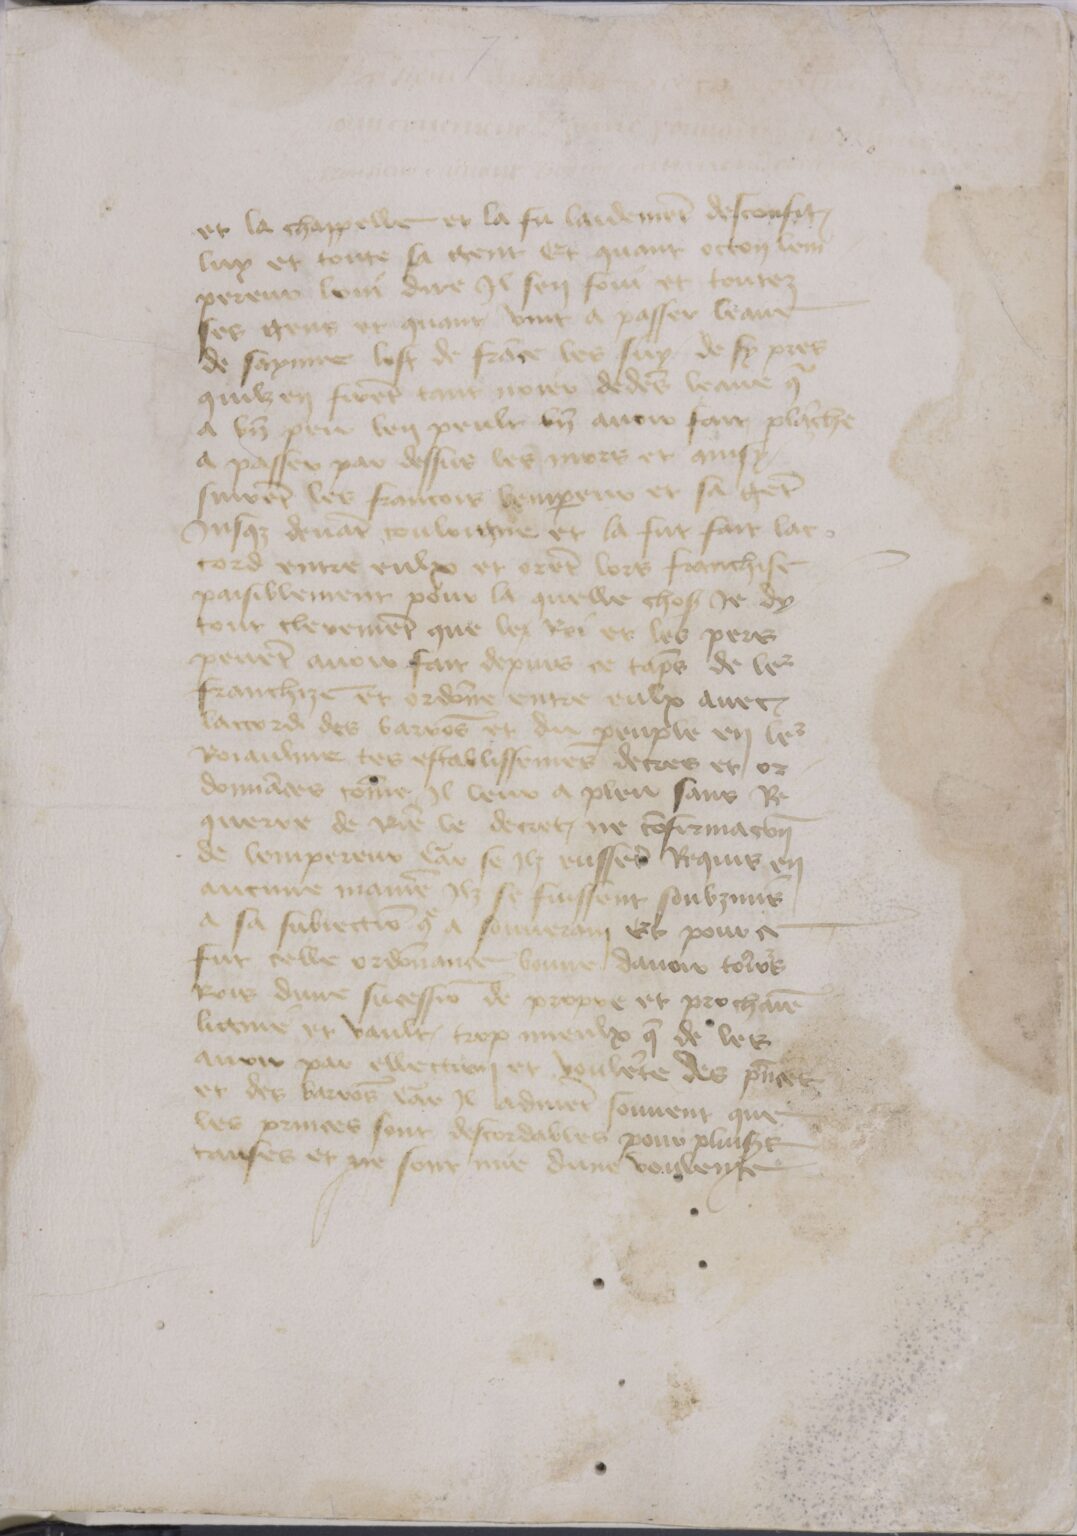 et la chappelle et la fu laidemēt desconfit
luy et toute sa gent Et quant octon lem
pereur loui dire Il sen foui et toutez
ses gens et quant vint a passer leaue
de saynne lost de frāce les suy de sy pres
quilz en firēt tant noier dedēs leaue q̄
a bn̄ peu len peult bn̄ auoir fait plāche
a passer par dessus les mors et ainsy
suirēt les francois lempereur et sa gēt
Jusq̄ deuāt couloigne et la fut fait lac
cord entre eulx et orēt lors franchise
paisiblement pour la quelle chose Je dy
tout cleremēt que lez Roi et les pers
peuēt auoir fait depuis ce tāps de le᷑
franchize et ordōne entre eulx auec
laccord des barōs et du peuple en le᷑
Roiaulme tes establissemēs decres et or
donnāces cōme Il leur a pleu sans Re
querre de Riē le decret ne cōfirmacōn
de lempereur car se Ilz eussēt Requis en
aucune maniē Ilz se fuissent soubzmis
a sa subiectiō q̄ a souuerain Et pour ce
fut celle ordōnance bonne dauoir
Rois dune sucessiō de propre et prochaīe
lignie et vault trop mieulx q̄ de les
auoir par ellection et voulēte des pn̄ces
et des barōs car Il aduiēt souuent que
les princes sont descordables pour pluis᷑s
causes et ne sont mie dune voulente